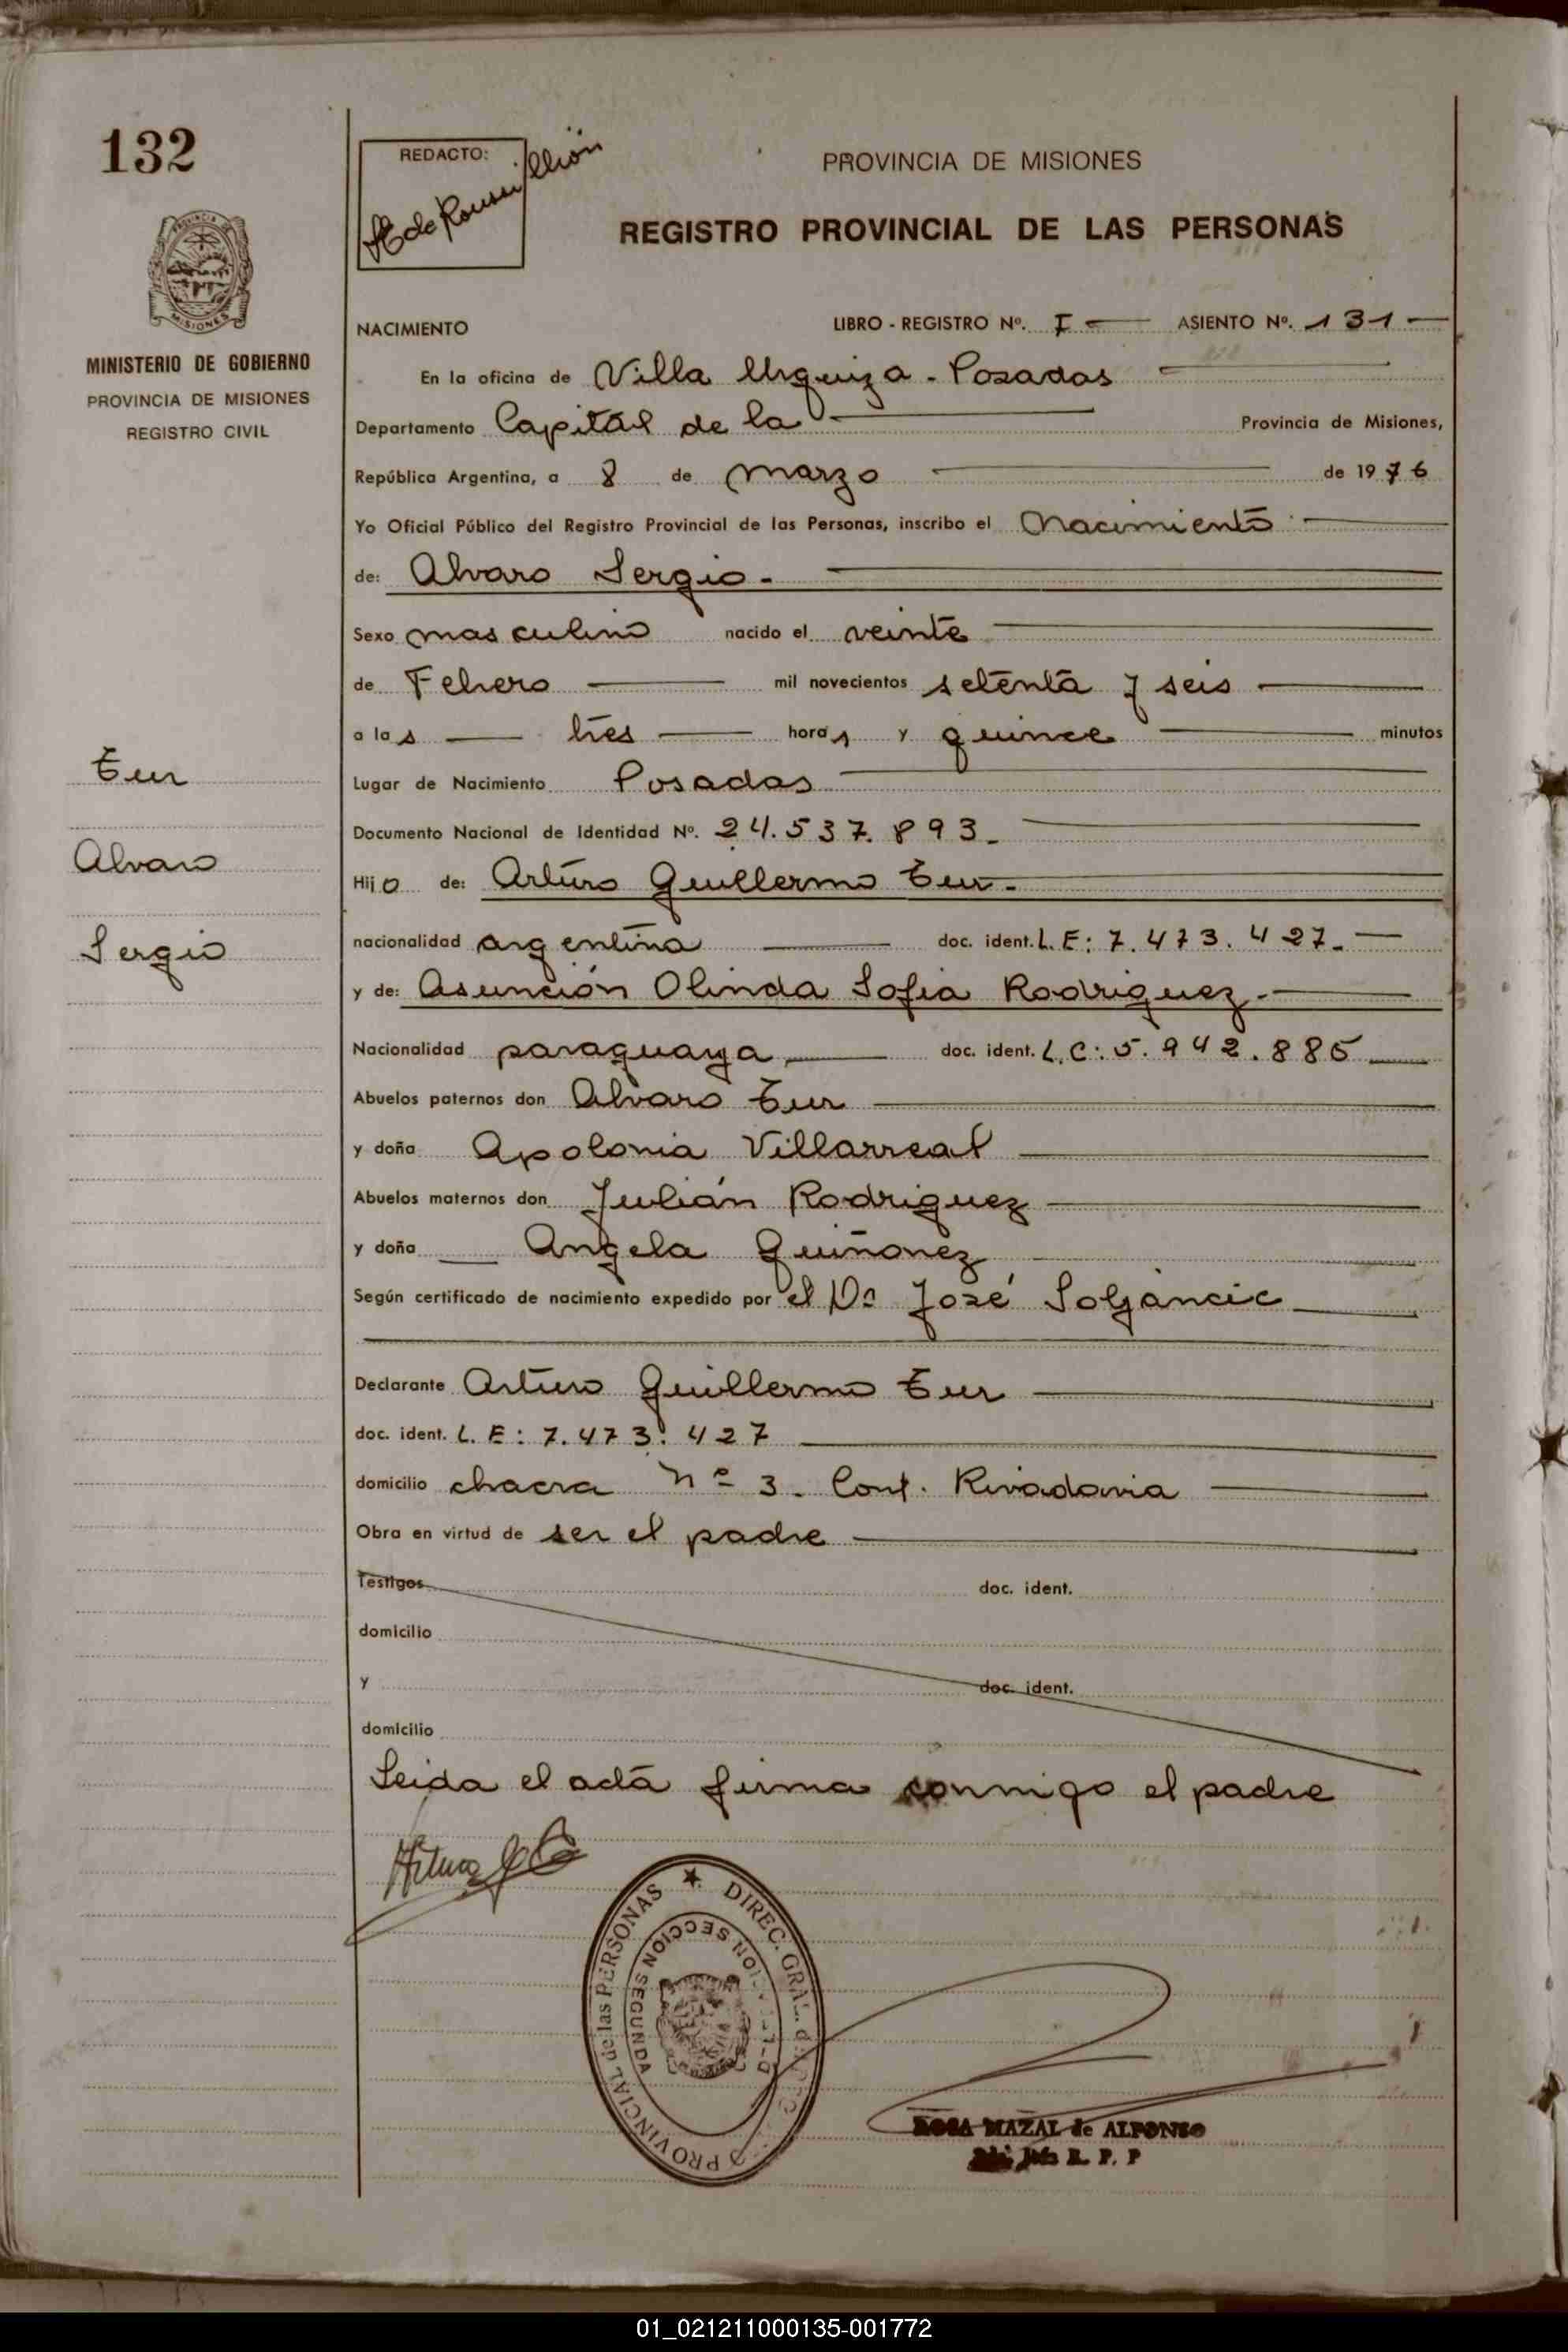 132
REDACTO:
PROVINCIA DE MISIONES
REGISTRO PROVINCIAL DE LAS PERSONAS
PROVINCIA
MISIONES
MINISTERIO DE GOBIERNO
PROVINCIA DE MISIONES
REGISTRO CIVIL
NACIMIENTO LIBRO - REGISTRO Nº. I ASIENTO Nº. 131
En la oficina de Villa Urquiza - Posadas
Departamento Capital de la Provincia de Misiones,
República Argentina, a 8 de marzo de 1976
Yo Oficial Público del Registro Provincial de las Personas, inscribo el Nacimiento
de: Alvaro Sergio.
Sexo masculino nacido el veinte
de Febrero mil novecientos setenta y seis
a las tres horas y quince minutos
Lugar de Nacimiento Posadas
Documento Nacional de Identidad Nº. 24.537.893.
Hijo de: Arturo Guillermo Eur.
nacionalidad argentina doc. ident. L.E: 7.473.427.
y de: Asunción Olinda Sofia Rodriguez.
Nacionalidad paraguaya doc. ident. L.C: 5.942.885
Abuelos paternos don Alvaro Eur
y doña Apolonia Villarreal
Abuelos maternos don Julián Rodriguez
y doña Angela Quiñonez
Según certificado de nacimiento expedido por el Dr José Soljancic
Declarante Arturo Guillermo Eur
doc. ident. L.E: 7.473.427
domicilio chacra Nº 3. Cont. Rivadavia
Obra en virtud de ser el padre
Testigos doc. ident.
domicilio
y doc. ident.
domicilio
Leida el acta firma conmigo el padre
Eur
Alvaro
Sergio
DIREC. GRAL. PROVINCIAL de las PERSONAS
SECCION SEGUNDA
ROSA MAZAL de ALFONSO
R. P. P
01_021211000135-001772